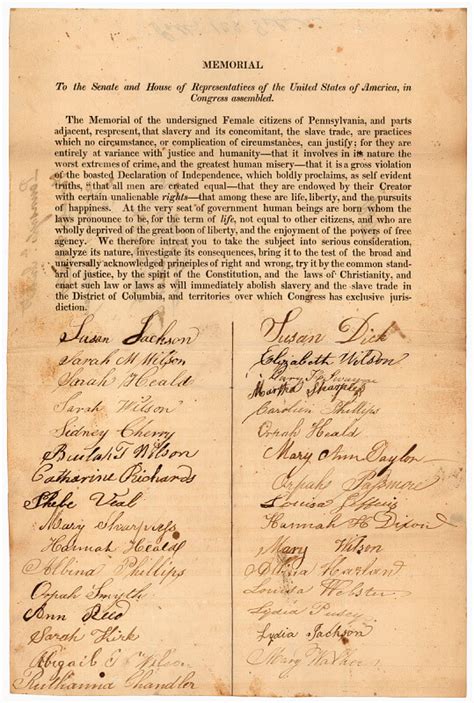 MEMORIAL
To the Senate and House of Representatives of the United States of America, in
Congress assembled.
The Memorial of the undersigned Female citizens of Pennsylvania, and parts
adjacent, respresent, that slavery and its concomitant, the slave trade, are practices
which no circumstance, or complication of circumstances, can justify; for they are
entirely at variance with justice and humanity—that it involves in its nature the
worst extremes of crime, and the greatest human misery—that it is a gross violation
of the boasted Declaration of Independence, which boldly proclaims, as self evident
truths, "that all men are created equal—that they are endowed by their Creator
with certain unalienable rights—that among these are life, liberty, and the pursuits
of happiness. At the very seat of government human beings are born whom the
laws pronounce to be, for the term of life, not equal to other citizens, and who are
wholly deprived of the great boon of liberty, and the enjoyment of the powers of free
agency. We therefore intreat you to take the subject into serious consideration,
analyze its nature, investigate its consequences, bring it to the test of the broad and
universally acknowledged principles of right and wrong, try it by the common stand-
ard of justice, by the spirit of the Constitution, and the laws of Christianity, and
enact such law or laws as will immediately abolish slavery and the slave trade in
the District of Columbia, and territories over which Congress has exclusive juris-
diction.
Susan Jackson
Sarah M Wilson
Sarah Heald
Sarah Wilson
Sidney Cherry
Beulah T Wilson
Catharine Richards
Phebe Veal
Mary Sharpless
Hannah Heald
Albina Phillips
Orpah Smyth
Ann Reed
Sarah Kirk
Abigail E Wilson
Ruthanna Chandler
Susan Dick
Elizabeth Wilson
Mary
Martha Sharples
Carolien Phillips
Orpah Heald
Mary Ann Taylor
Orpah Passmore
Louisa
Hannah H Dixon
Mary Wilson
Harlan
Louisa Webster
Lydia Pusey
Lydia Jackson
Mary